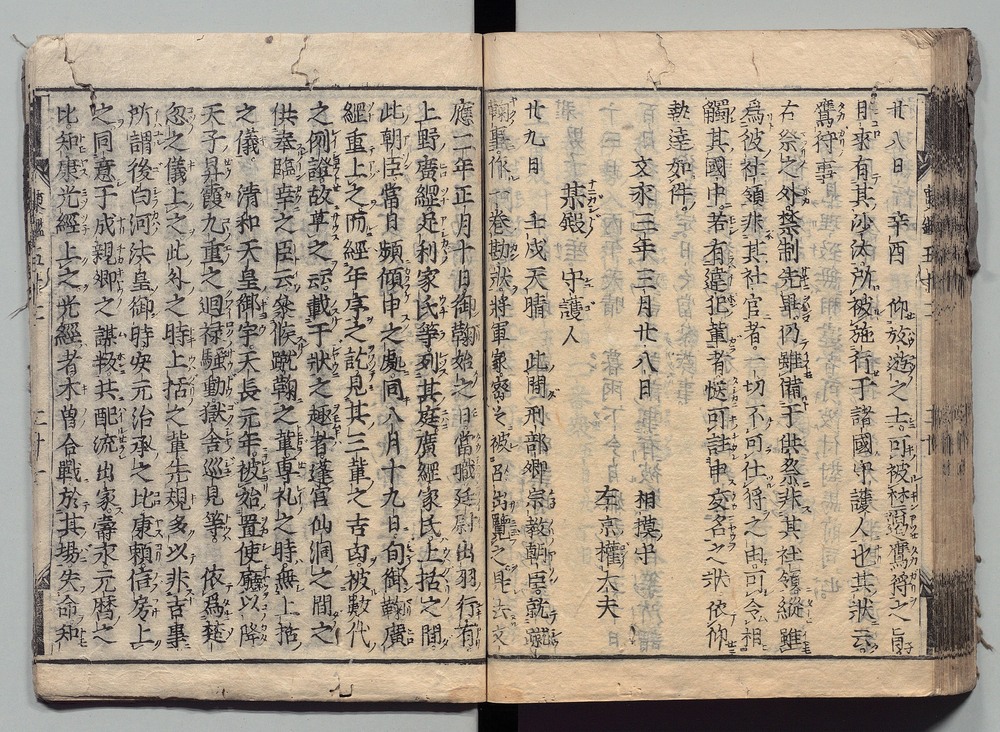 廿八日 辛酉 仰放遊之士可被禁遏鷹狩之旨
日來有其沙汰所被施行于諸國守護人也其狀云
鷹狩事
右祭之外禁制先畢仍雖備于供祭非其社領縱雖
爲彼社領非其社官者一切不可仕狩之由可令相
觸其國中若有違犯輩者慥可註申交名之狀依仰
執達如件
文永三年三月廿八日 相摸守
左京權大夫
某殿 守護人
廿九日 壬戌天晴 此間刑部卿宗教朝臣就蹴
鞠聖作 卷勘狀將軍家密之被召出覽之其去文
應二年正月十日御鞠始之日當職廷尉出羽行有
上野廣經足利家氏等列其庭廣經家氏上括之間
此朝臣當日頻傾申之處同八月十九日旬御鞠廣
經重上之而經年序之訖見其三輩之吉凶被勘代
之例證故草之云載于狀之趣者蓬宮仙洞之間之
供奉臨幸之臣云祭候蹴鞠之輩專礼之時無上括
之儀 清和天皇御宇天長元年被始置使廳以降
天子昇霞九重之迴祿騒動獄舍巡見等 依爲楚
忽之儀上之此外之時上括之輩先規多以非吉事
所謂後白河法皇御時安元治承之比康頼信房上
之同意于成親卿之謀叛共配流出家壽永元暦之
比知康光經上之光經者木曾合戰於其場失命知